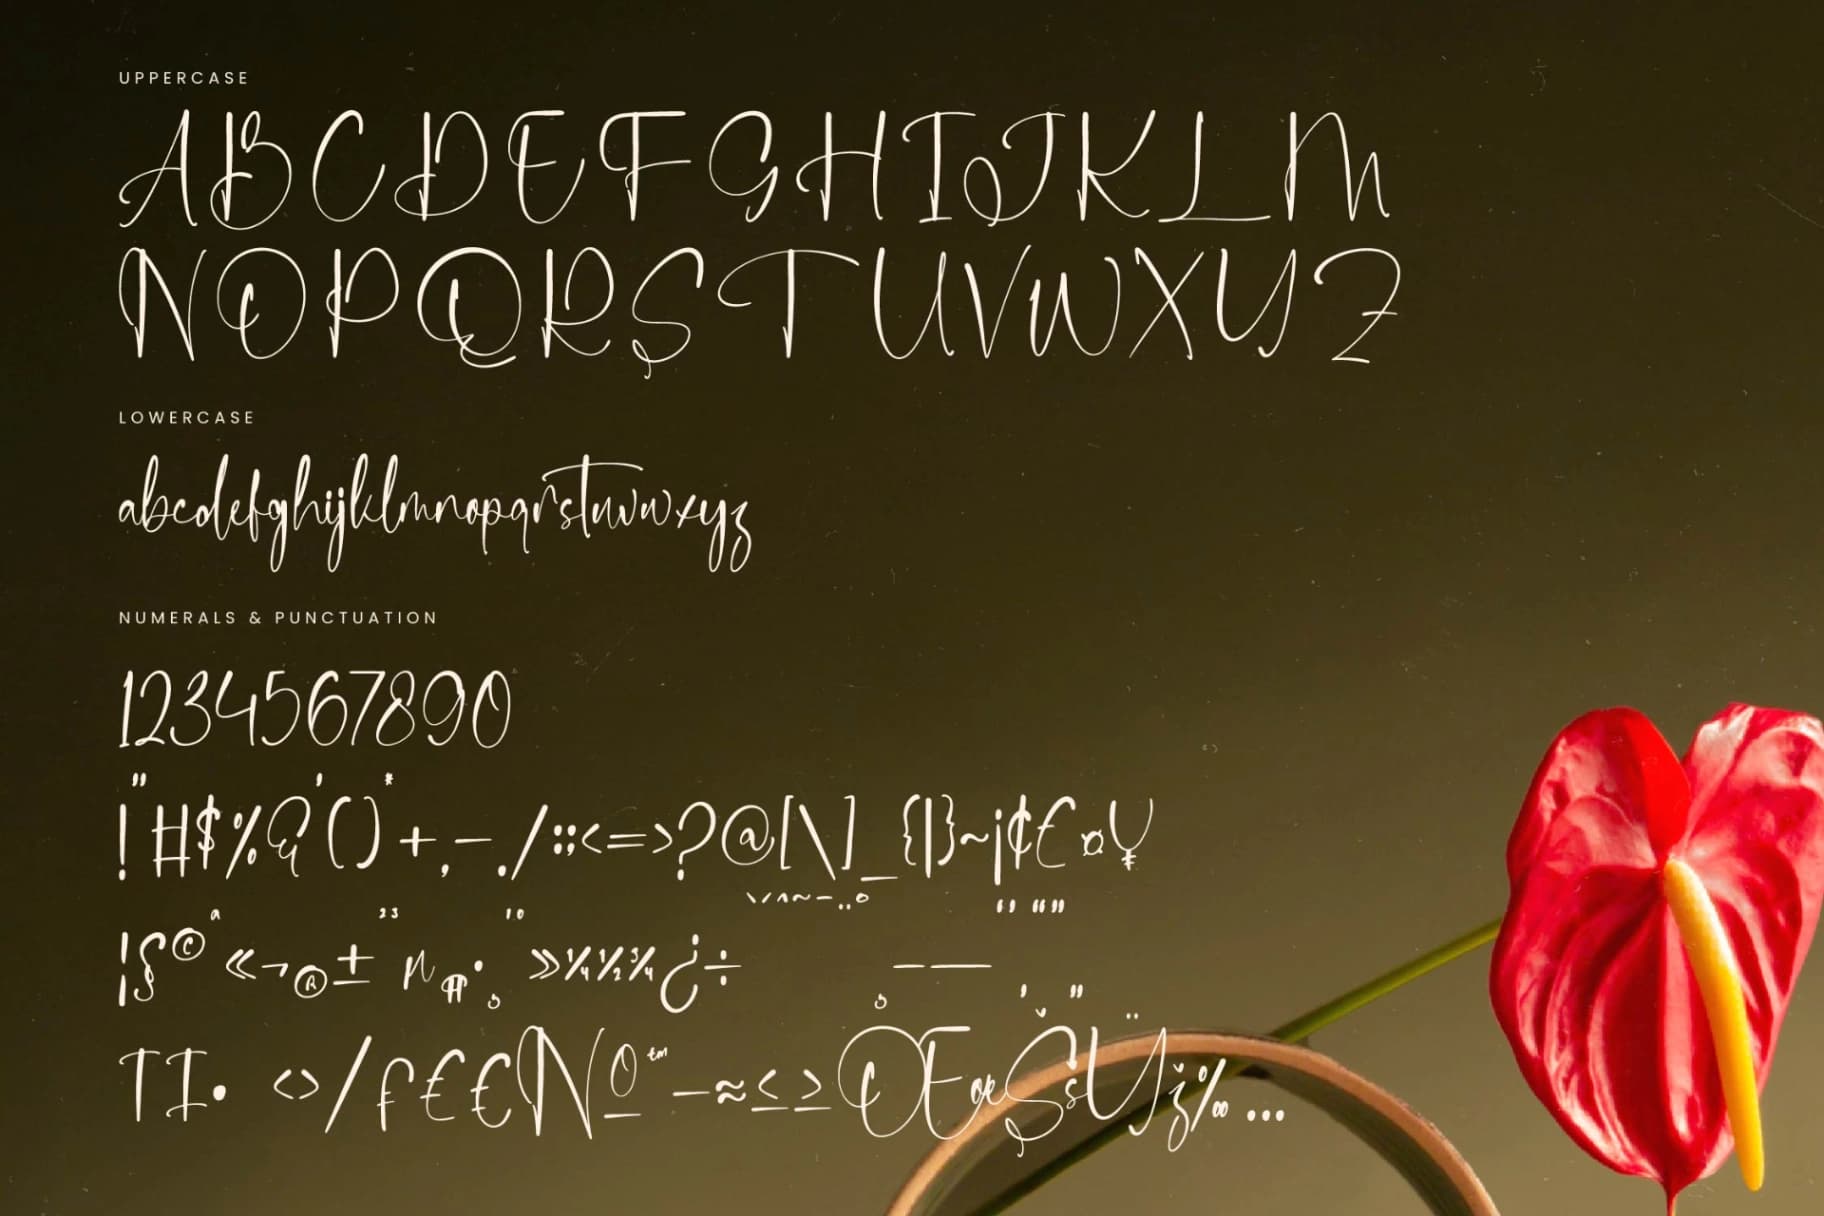 UPPERCASE
ABCDEFGHIJKLM
NOPQRSTUVWXYZ
LOWERCASE
abcdefghijklmnopqrstuvwxyz
NUMERALS & PUNCTUATION
1234567890
!"#$%&'()*+,-./:;<=>?@[\]_{|}~¡¢£¤¥
¦§©ª«¬®±²³µ¶·¸¹º»¼½¾¿÷ – —
‹›⁄ƒ£€№™−≈≤≥ŒœŠšŸž‰…